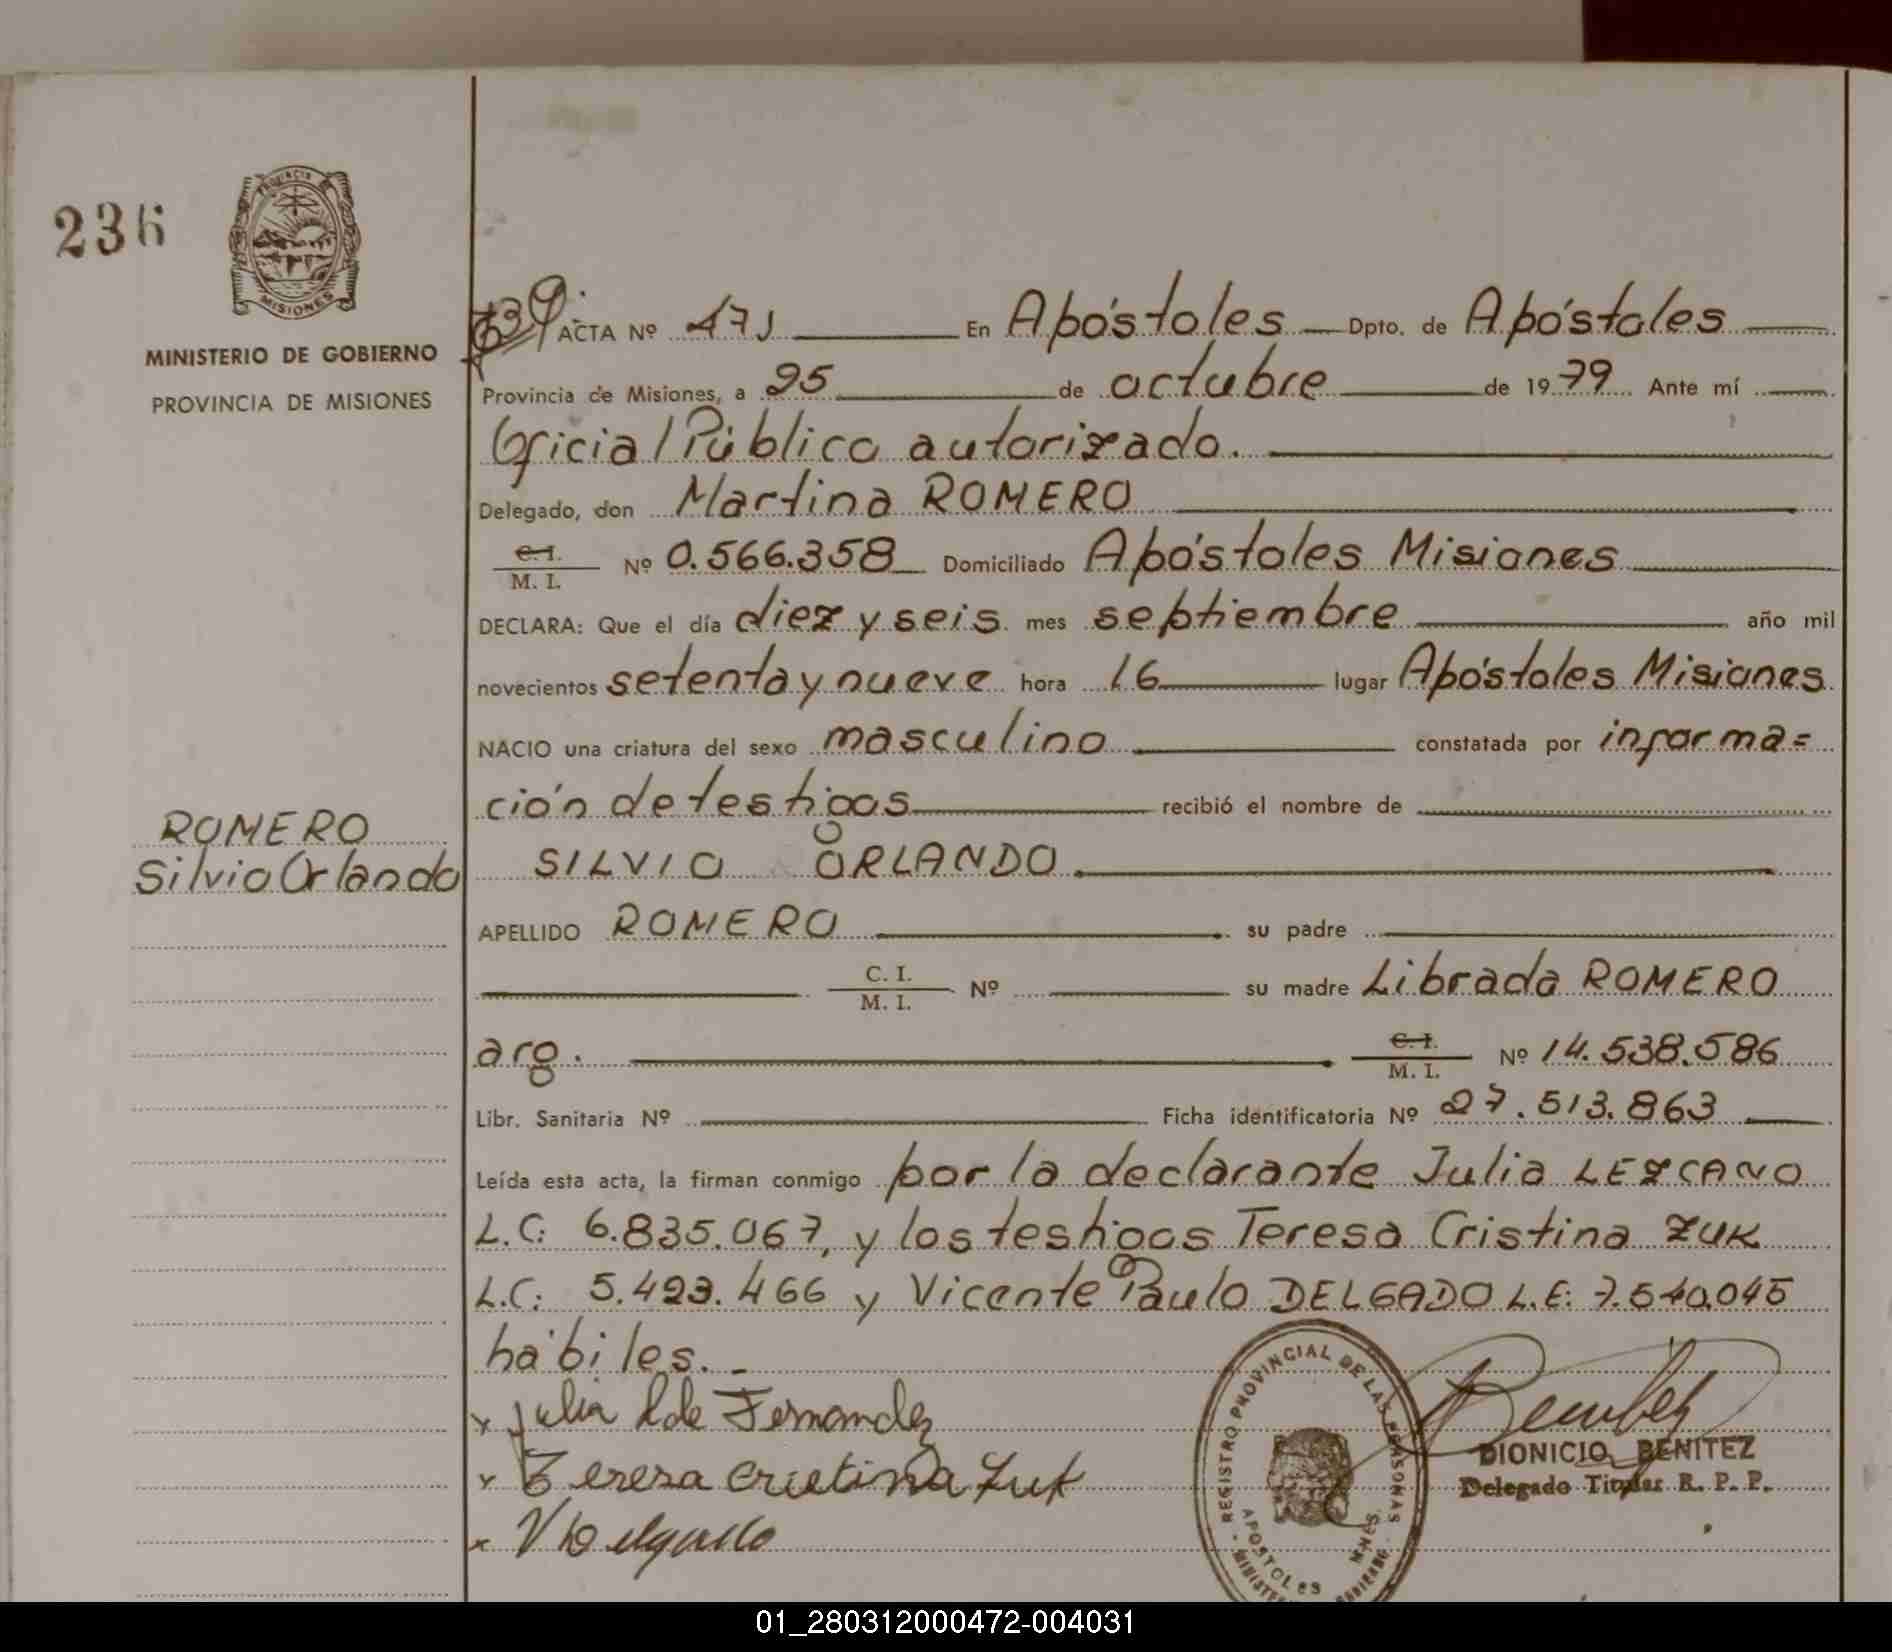 236
PROVINCIA
MISIONES
MINISTERIO DE GOBIERNO
PROVINCIA DE MISIONES
ROMERO
Silvio Orlando
ACTA Nº 471 En Apóstoles Dpto. de Apóstoles
Provincia de Misiones, a 25 de octubre de 1979 Ante mí
Oficial Público autorizado.
Delegado, don Martina ROMERO
C.I. / M. I. Nº 0.566.358 Domiciliado Apóstoles Misiones
DECLARA: Que el día diez y seis mes septiembre año mil
novecientos setenta y nueve hora 16 lugar Apóstoles Misiones
NACIO una criatura del sexo masculino constatada por informa=
ción de testigos recibió el nombre de
SILVIO ORLANDO
APELLIDO ROMERO su padre
C. I. / M. I. Nº su madre Librada ROMERO
arg. C.I. / M. I. Nº 14.538.586
Libr. Sanitaria Nº Ficha identificatoria Nº 27.513.863
Leída esta acta, la firman conmigo por la declarante Julia LEZCANO
L.C: 6.835.067, y los testigos Teresa Cristina ZUK
L.C: 5.423.466 y Vicente Paulo DELGADO L.E: 7.540.045
hábiles.
x Julia L de Fernandez
x Teresa Cristina Zuk
x V Delgado
REGISTRO PROVINCIAL DE LAS PERSONAS
APOSTOLES MNES.
DIONICIO BENITEZ
Delegado Titular R. P. P.
01_280312000472-004031